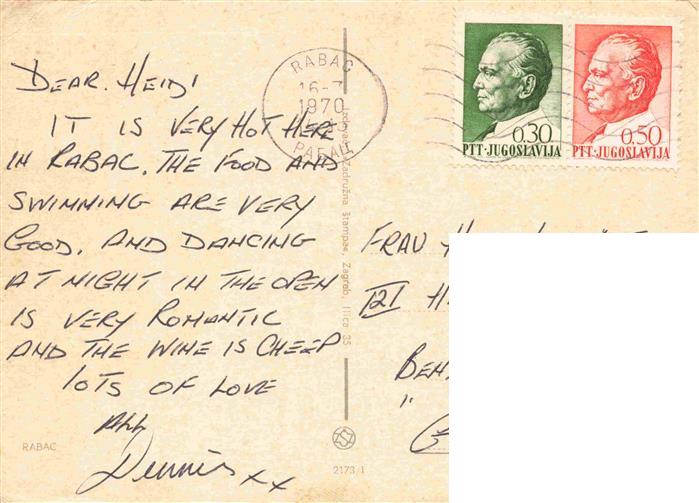 DEAR HEIDI
IT IS VERY HOT HERE
IN RABAC. THE FOOD AND
SWIMMING ARE VERY
GOOD. AND DANCING
AT NIGHT IN THE OPEN
IS VERY ROMANTIC
AND THE WINE IS CHEEP
LOTS OF LOVE
ALL
Dennis xx
RABAC
RABAC
16-7
1970
РАБАЦ
Zadružna štampa«, Zagreb, Ilica 35
2173/1
0.30
PTT·JUGOSLAVIJA
0.50
PTT·JUGOSLAVIJA
FRAU